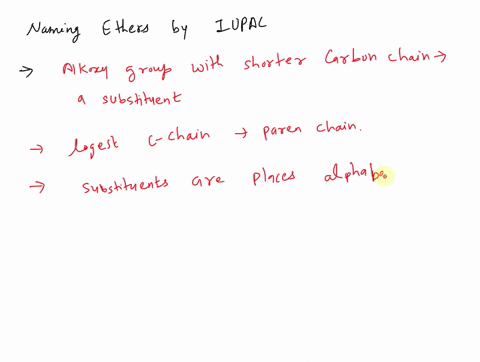 Naming Ethers by IUPAC
→ Alkoxy group with shorter Carbon chain →
a substituent
→ logest C-chain → paren chain.
→ substituents are places alphabe